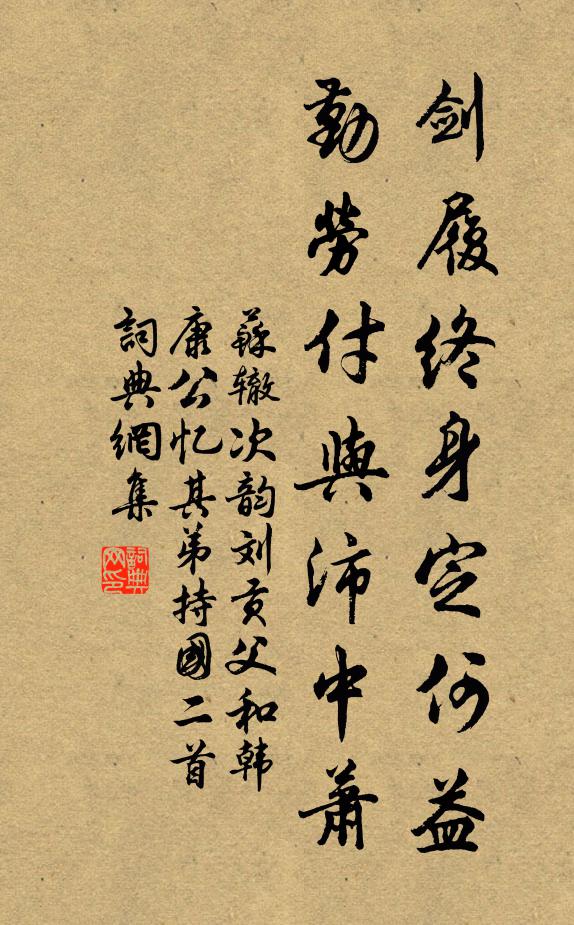 剑履终身定何益
勤劳付與沛中萧
蘇辙次韵刘贡父和韩
康公忆其弟持國二首
詞典網集
詞典网印